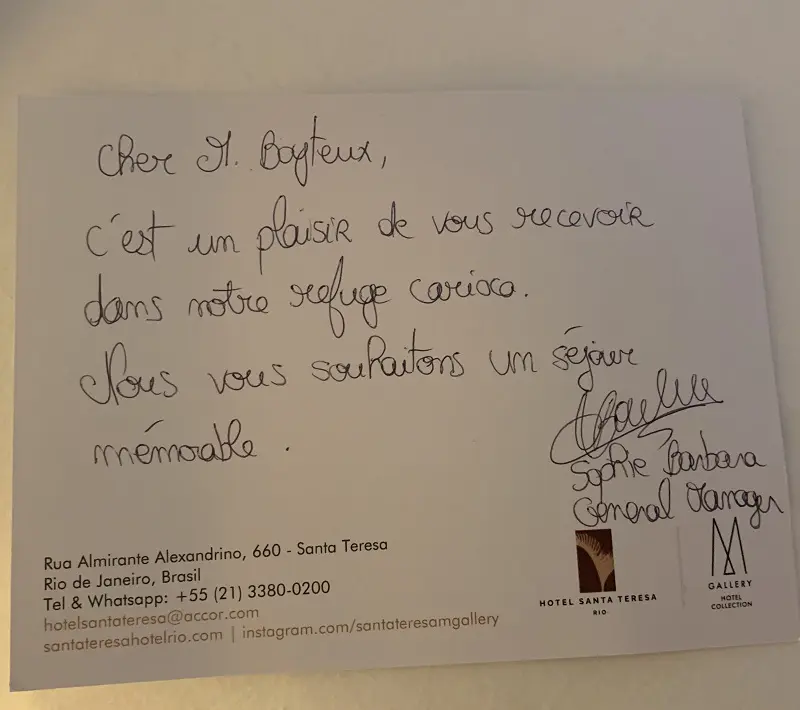 Cher M. Boyteux,
c'est un plaisir de vous recevoir
dans notre refuge carioca.
Nous vous souhaitons un séjour
mémorable.
Sophie Barbara
General Manager
Rua Almirante Alexandrino, 660 - Santa Teresa
Rio de Janeiro, Brasil
Tel & Whatsapp: +55 (21) 3380-0200
hotelsantateresa@accor.com
santateresahotelrio.com | instagram.com/santateresamgallery
HOTEL SANTA TERESA
RIO
M
GALLERY
HOTEL
COLLECTION